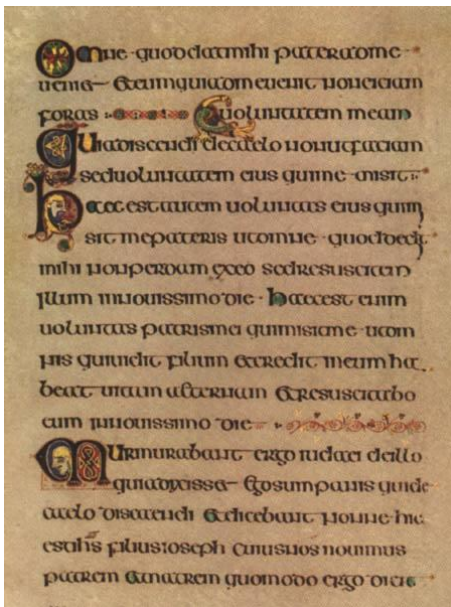 Omne quod dat mihi pater adme
ueniet & eum qui adme uenit non eiciam
foras uoluntatem meam
Quia discendi decaelo non ut faciam
sed uoluntatem eius qui me misit
haec est autem uoluntas eius qui m
sit me pateris ut omne quod dedit
mihi non perdam ex eo sed resuscitem
illum in nouissimo die haec est enim
uoluntas patris mei qui misit me ut om
nis qui uidit filium & credit in eum ha
beat uitam aeternam & resuscitabo
eum in nouissimo die
Murmurabant ergo iudaei deillo
quia dixisset Ego sum panis qui de
caelo discendi & dicebant nonne hic
est ihs filius ioseph cuius nos nouimus
patrem & matrem quomodo ergo dicit